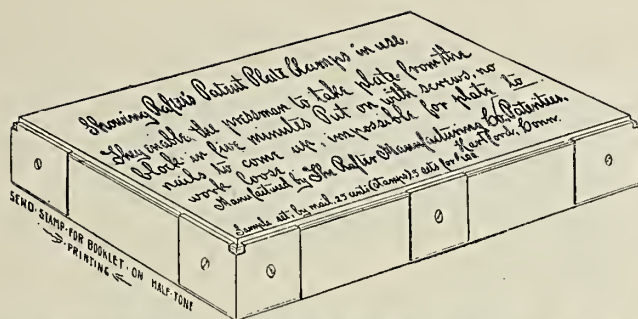 Showing Rafter's Patent Plate Clamps in use.
They enable the pressman to take plate from the
block in five minutes Put on with screws, no
nails to come up, impossible for plate to
work loose
Manufactured by The Rafter Manufacturing Co. Patentees,
Hartford, Conn.
Sample set by mail, 25 cents (stamps) 5 sets for
SEND STAMP FOR BOOKLET ON HALF-TONE
PRINTING